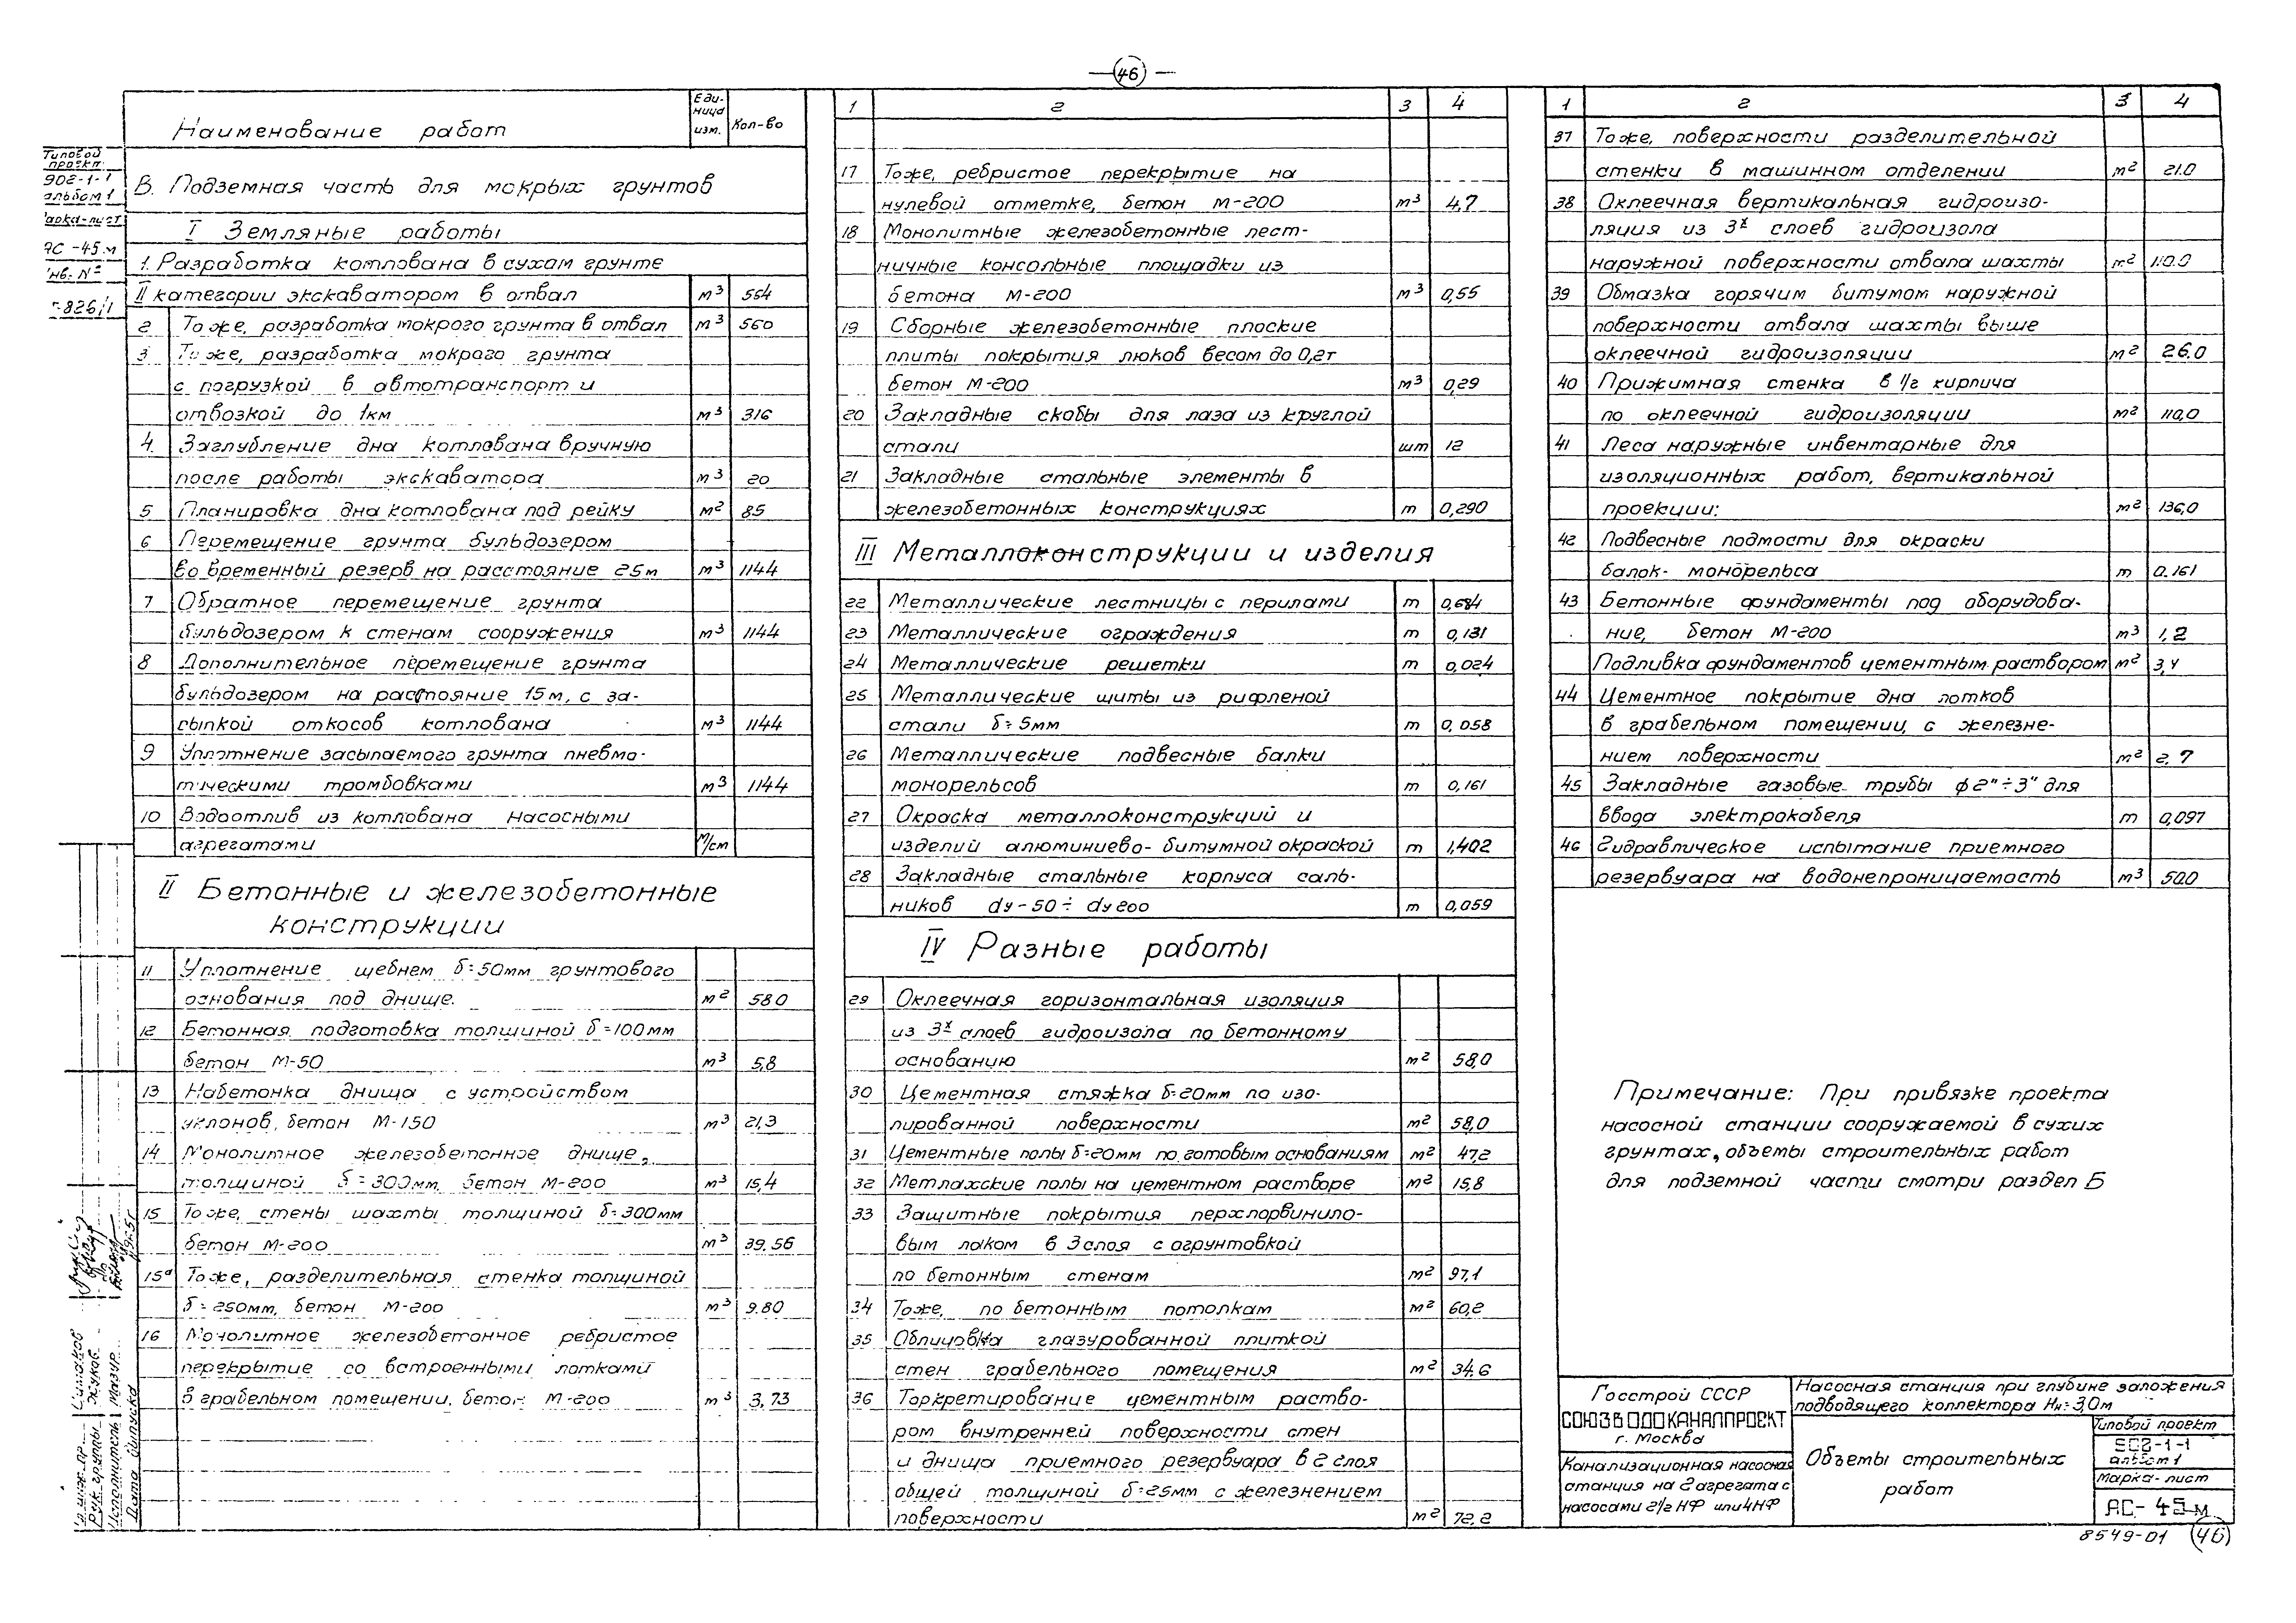 46
Наименование работ
Еди-
ница
изм.
Кол-во
В. Подземная часть для мокрых грунтов
I Земляные работы
1. Разработка котлована в сухом грунте
II категории экскаватором в отвал м³ 564
2 То же, разработка мокрого грунта в отвал м³ 560
3 То же, разработка мокрого грунта
с погрузкой в автотранспорт и
отвозкой до 1км м³ 316
4. Заглубление дна котлована вручную
после работы экскаватора м³ 20
5 Планировка дна котлована под рейку м² 85
6 Перемещение грунта бульдозером
во временный резерв на расстояние 25м м³ 1144
7 Обратное перемещение грунта
бульдозером к стенам сооружения м³ 1144
8 Дополнительное перемещение грунта
бульдозером на расстояние 15м, с за-
сыпкой откосов котлована м³ 1144
9 Уплотнение засыпаемого грунта пневма-
тическими тромбовками м³ 1144
10 Водоотлив из котлована насосными
агрегатами м/см
II Бетонные и железобетонные
конструкции
11 Уплотнение щебнем δ=50мм грунтового
основания под днище. м² 58.0
12 Бетонная подготовка толщиной δ=100мм
бетон М-50 м³ 5,8
13 Набетонка днища с устройством
уклонов, бетон М-150 м³ 21,3
14 Монолитное железобетонное днище,
толщиной δ=300мм, бетон М-200 м³ 15,4
15 То же, стены шахты толщиной δ=300мм
бетон М-200 м³ 39.56
15а То же, разделительная стенка толщиной
δ=250мм, бетон М-200 м³ 9.80
16 Монолитное железобетонное ребристое
перекрытие со встроенными лотками
в грабельном помещении, бетон М-200 м³ 3,73
1 2 3 4
17 То же, ребристое перекрытие на
нулевой отметке, бетон М-200 м³ 4,7
18 Монолитные железобетонные лест-
ничные консольные площадки из
бетона М-200 м³ 0,55
19 Сборные железобетонные плоские
плиты покрытия люков весом до 0,2т
бетон М-200 м³ 0,29
20 Закладные скобы для лаза из круглой
стали шт 12
21 Закладные стальные элементы в
железобетонных конструкциях т 0,290
III Металлоконструкции и изделия
22 Металлические лестницы с перилами т 0,684
23 Металлические ограждения т 0,131
24 Металлические решетки т 0,024
25 Металлические щиты из рифленой
стали δ=5мм т 0,058
26 Металлические подвесные балки
монорельсов т 0,161
27 Окраска металлоконструкций и
изделий алюминиево-битумной окраской т 1,402
28 Закладные стальные корпуса саль-
ников dу-50÷dу200 т 0,059
IV Разные работы
29 Оклеечная горизонтальная изоляция
из 3х слоев гидроизола по бетонному
основанию м² 58,0
30 Цементная стяжка δ=20мм по изо-
лированной поверхности м² 58,0
31 Цементные полы δ=20мм по готовым основаниям м² 47,2
32 Метлахские полы на цементном растворе м² 15,8
33 Защитные покрытия перхлорвинило-
вым лаком в 3 слоя с огрунтовкой
по бетонным стенам м² 97,1
34 То же, по бетонным потолкам м² 60,2
35 Облицовка глазурованной плиткой
стен грабельного помещения м² 34,6
36 Торкретирование цементным раство-
ром внутренней поверхности стен
и днища приемного резервуара в 2 слоя
общей толщиной δ=25мм с железнением
поверхности м² 72,2
1 2 3 4
37 То же, поверхности разделительной
стенки в машинном отделении м² 21.0
38 Оклеечная вертикальная гидроизо-
ляция из 3х слоев гидроизола
наружной поверхности отвала шахты м² 110.0
39 Обмазка горячим битумом наружной
поверхности отвала шахты выше
оклеечной гидроизоляции м² 26.0
40 Прижимная стенка в 1/2 кирпича
по оклеечной гидроизоляции м² 110,0
41 Леса наружные инвентарные для
изоляционных работ, вертикальной
проекции: м² 136,0
42 Подвесные подмости для окраски
балок- монорельса т 0.161
43 Бетонные фундаменты под оборудова-
ние, бетон М-200 м³ 1,2
Подливка фундаментов цементным раствором м² 3,4
44 Цементное покрытие дна лотков
в грабельном помещении, с железне-
нием поверхности м² 2,7
45 Закладные газовые трубы ф2"÷3" для
ввода электрокабеля т 0,097
46 Гидравлическое испытание приемного
резервуара на водонепроницаемость м³ 50.0
Примечание: При привязке проекта
насосной станции сооружаемой в сухих
грунтах, объемы строительных работ
для подземной части смотри раздел Б
Госстрой СССР
СОЮЗВОДОКАНАЛПРОЕКТ
г. Москва
Канализационная насосная
станция на 2 агрегата с
насосами 2½ НФ или 4НФ
Насосная станция при глубине заложения
подводящего коллектора Нн=3,0м
Объемы строительных
работ
Типовой проект
902-1-1
альбом 1
Марка-лист
АС-45м
8549-01 46
Типовой
проект
902-1-1
альбом 1
арка-лист
АС-45м
инв. №
826/1
Рук. группы Жуков
Исполнитель Мазур
Дата выпуска